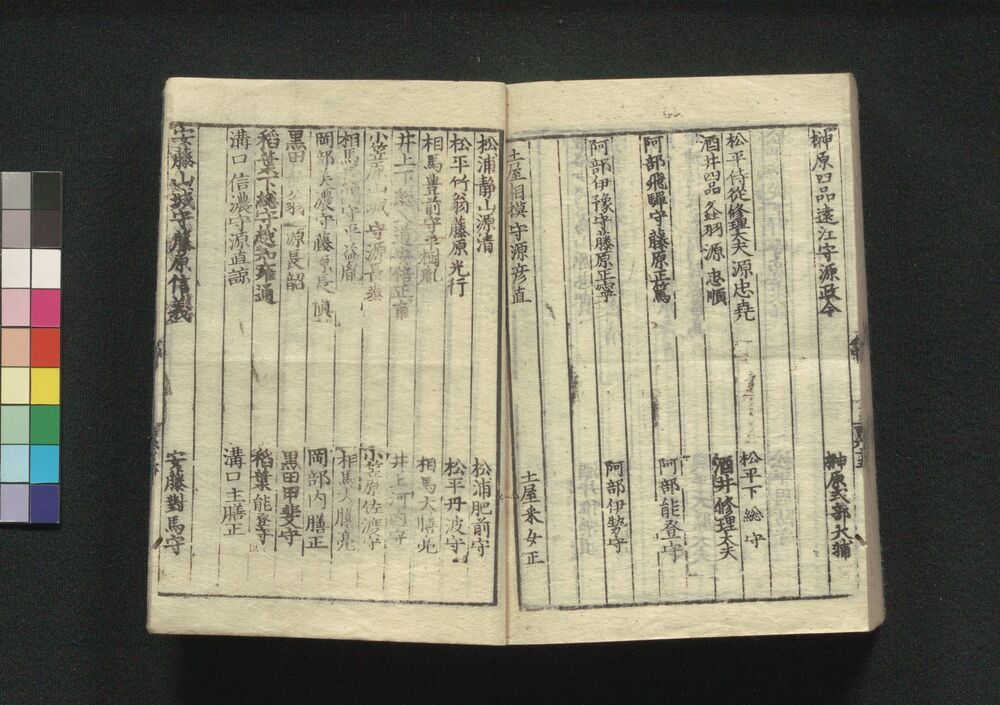 榊原四品遠江守源政令
榊原式部大輔
松平侍從修理大夫源忠堯
松平下総守
酒井四品
源忠順
酒井修理大夫
阿部飛驒守藤原正篤
阿部能登守
阿部伊豫守藤原正寧
阿部伊勢守
土屋相模守源彦直
土屋采女正
松浦静山源清
松浦肥前守
松平竹翁藤原光行
松平丹波守
相馬豊前守平樹胤
相馬大膳亮
井上下総入道
井上河内守
小笠原山城守源長
小笠原佐渡守
相馬
守平益胤
相馬大膳亮
岡部美濃守藤原長慎
岡部内膳正
黒田
翁源長韶
黒田甲斐守
稻葉下総守越智雍通
稻葉能登守
溝口信濃守源直諒
溝口主膳正
安藤山城守藤原信義
安藤對馬守